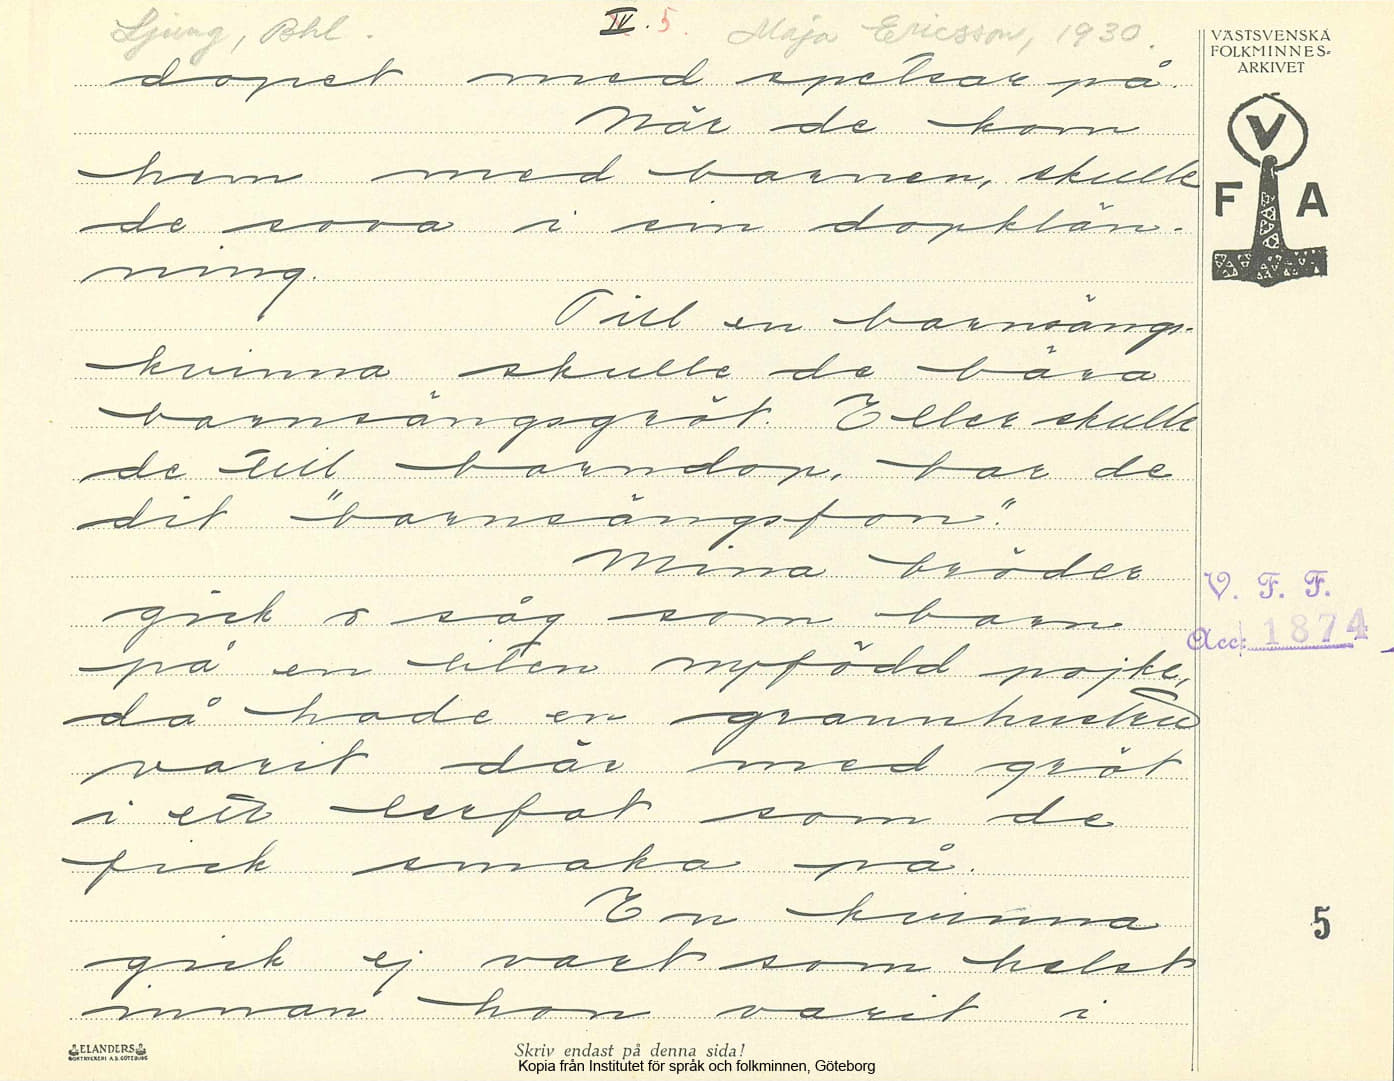 Ljung, Bhl.
IV. 5.
Maja Ericsson, 1930.
VÄSTSVENSKA
FOLKMINNES-
ARKIVET
V
F A
dopet med spetsar på.
När de kom
hem med barnen, skulle
de sova i sin dopklän-
ning.
Till en barnsängs-
kvinna skulle de bära
barnsängsgröt. Eller skulle
de till barndop, bar de
dit "barnsängsfon".
Mina bröder
gick o såg som barn
på en liten nyfödd pojke,
då hade en grannhustru
varit där med gröt
i ett lerfat som de
fick smaka på.
En kvinna
gick ej vart som helst
innan hon varit i
V. F. F.
Acc: 1874
5
ELANDERS
BOKTRYCKERI A.B. GÖTEBORG
Skriv endast på denna sida!
Kopia från Institutet för språk och folkminnen, Göteborg